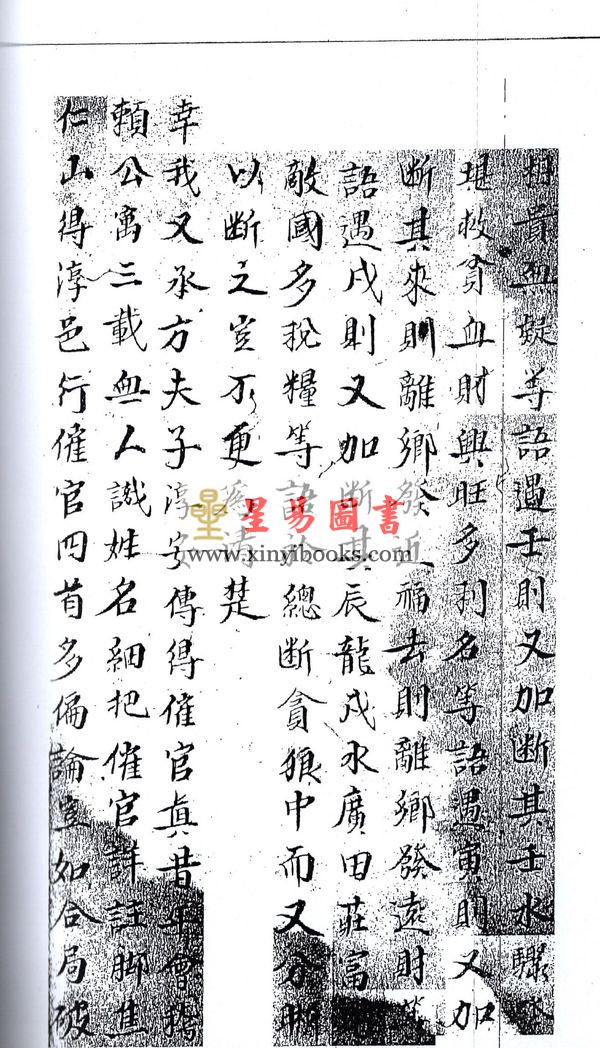 相貴血疑等語遇壬則又加断其壬水驟
堪救貧血財興旺多利名等語遇寅則又加
断其來則離鄉發福去則離鄉發遠財等
語遇戌則又加断其辰龍戌水廣田莊富
敵國多稅糧等語於總断貪狼中而又分
以断之豈不更為清楚
幸我又承方夫子淳安傳得催官真昔年會
賴公寓三載血人識姓名細把催官詳註脚
仁山得淳邑行催官四首多偏論豈如合局破
星易圖書
www.xinyibooks.com